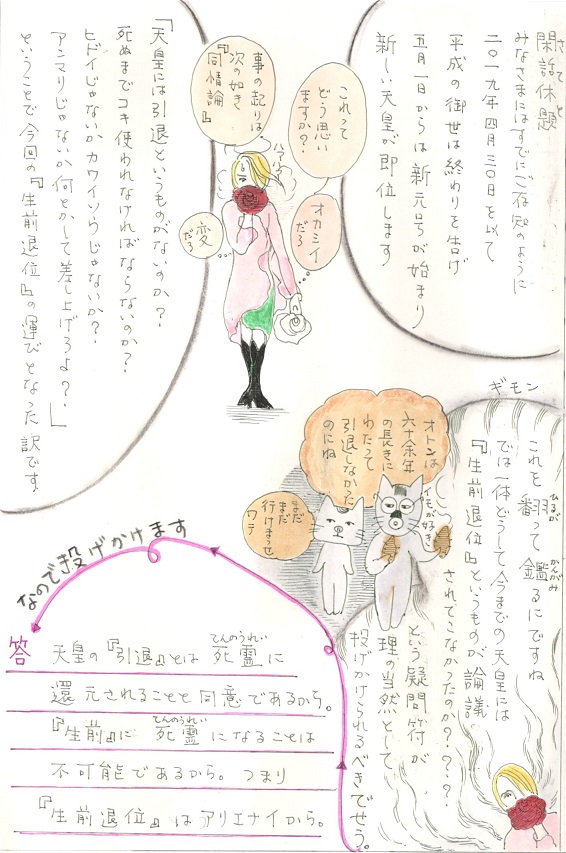 閑話休題
さてと
みなさまにはすでにご存知のように
二〇一九年四月三〇日を以て
平成の御世は終わりを告げ
五月一日からは新元号が始まり
新しい天皇が即位します
これって
どう思い
ますか?
オカミイ
だろ
事の起りは、
次の如き
『同情論』
変
だろ
「天皇には引退というものがないのか?
死ぬまでコキ使われなければならないのか?
ヒドイじゃないかカワイソウじゃないか?
アンマリじゃないか何とかして差し上げろよ?」
ということで今回の『生前退位』の運びとなった訳です
ギモン
これを翻って鑑るにですね
ひるが
かんがみ
では一体どうして今までの天皇には
『生前退位』というものが論議
されてこなかったのか????
という疑問符が
理の当然として
投げかけられるべきでせう。
オトンは
六十余年
の長きに
わたって
引退しなかった
のにね
イモが好き
まだ
まだ
行けまっせ
ワテ
なので投げかけます
答
天皇の『引退』とは死霊に
てんのうれい
還元されることと同意であるから。
『生前』に死霊になることは
てんのうれい
不可能であるから。つまり
『生前退位』はアリエナイから。